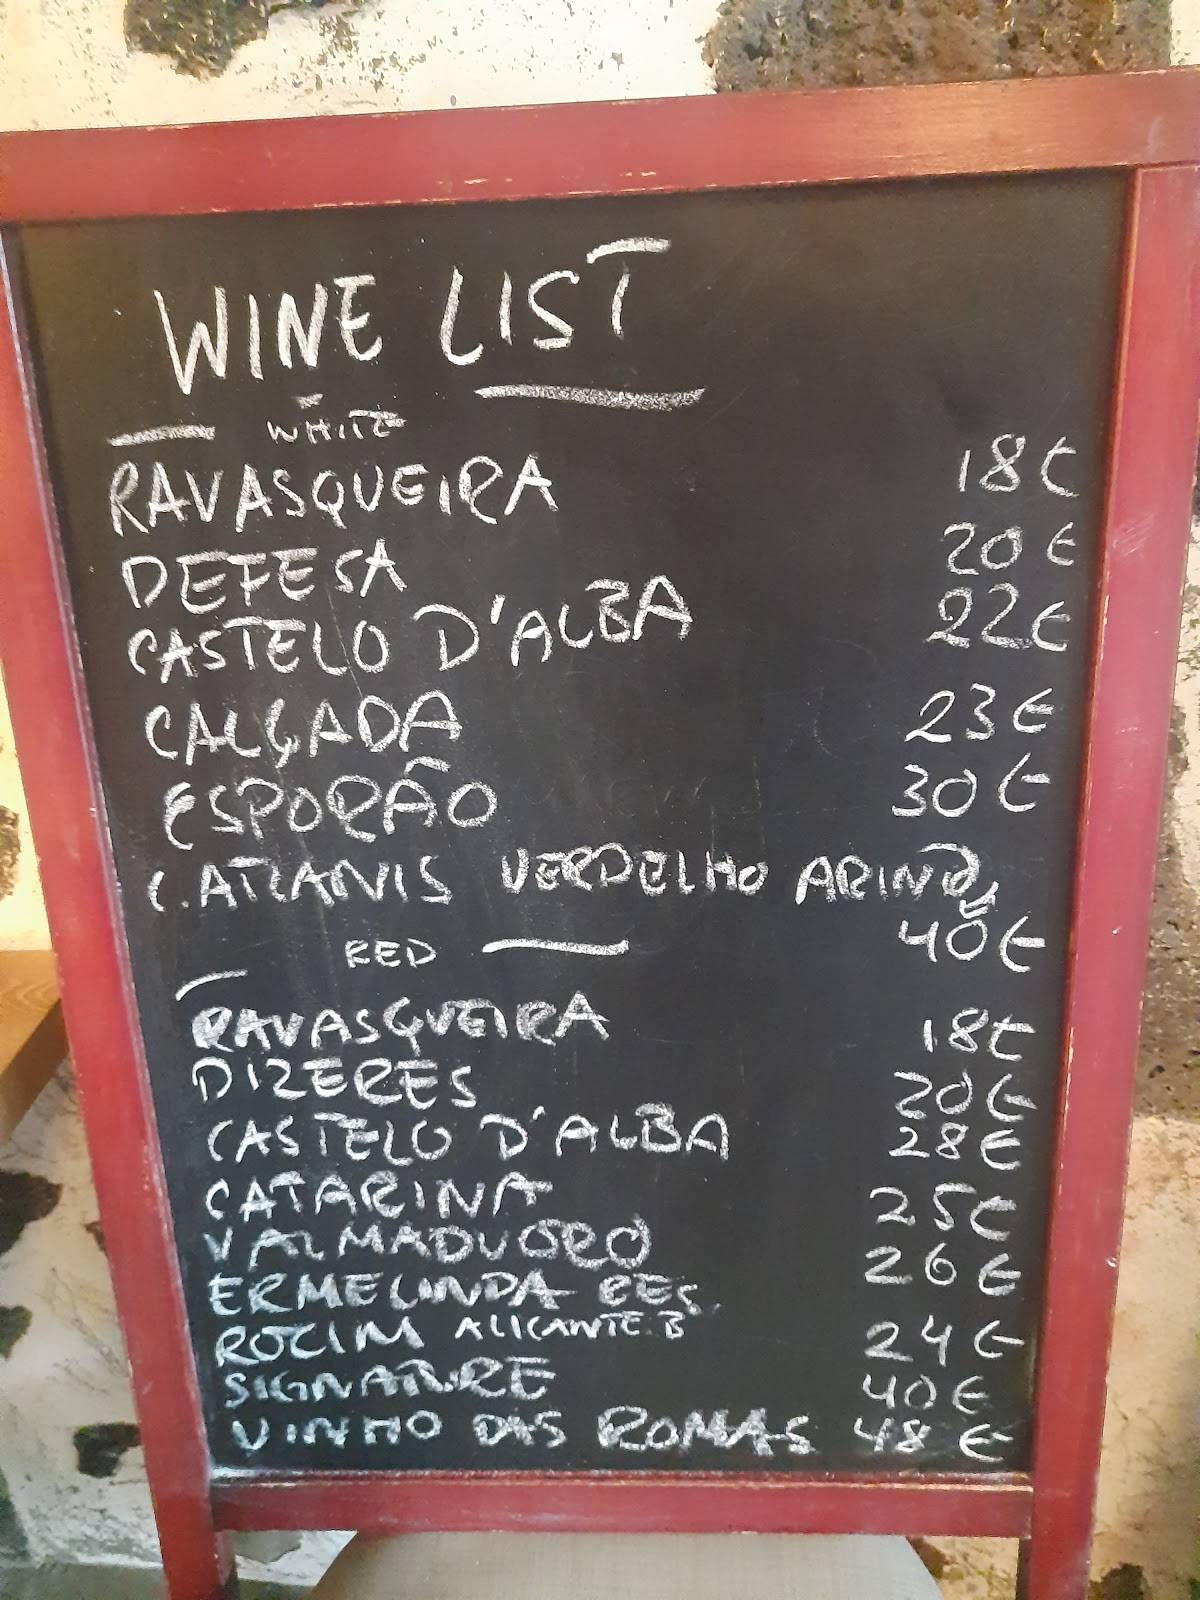 WINE LIST
WHITE
RAVASQUEIRA 18€
DEFESA 20€
CASTELO D'ALBA 22€
CALÇADA 23€
ESPORÃO 30€
C.ATLANIS VERDELHO ARINTO
40€
RED
RAVASQUEIRA 18€
DIZERES 20€
CASTELO D'ALBA 28€
CATARINA 25€
VALMADUORO 26€
ERMELINDA RES.
ROCIM ALICANTE.B 24€
SIGNATURE 40€
VINHO DAS ROMAS 48€